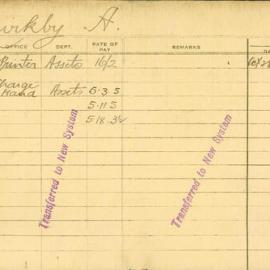 A.
OFFICE DEPT. RATE OF PAY REMARKS
Printer Assets 16/2
Charge Hand Assets 6. 3. 5
5. 11. 5
5. 18. 3½
Transferred to New System
Transferred to New System